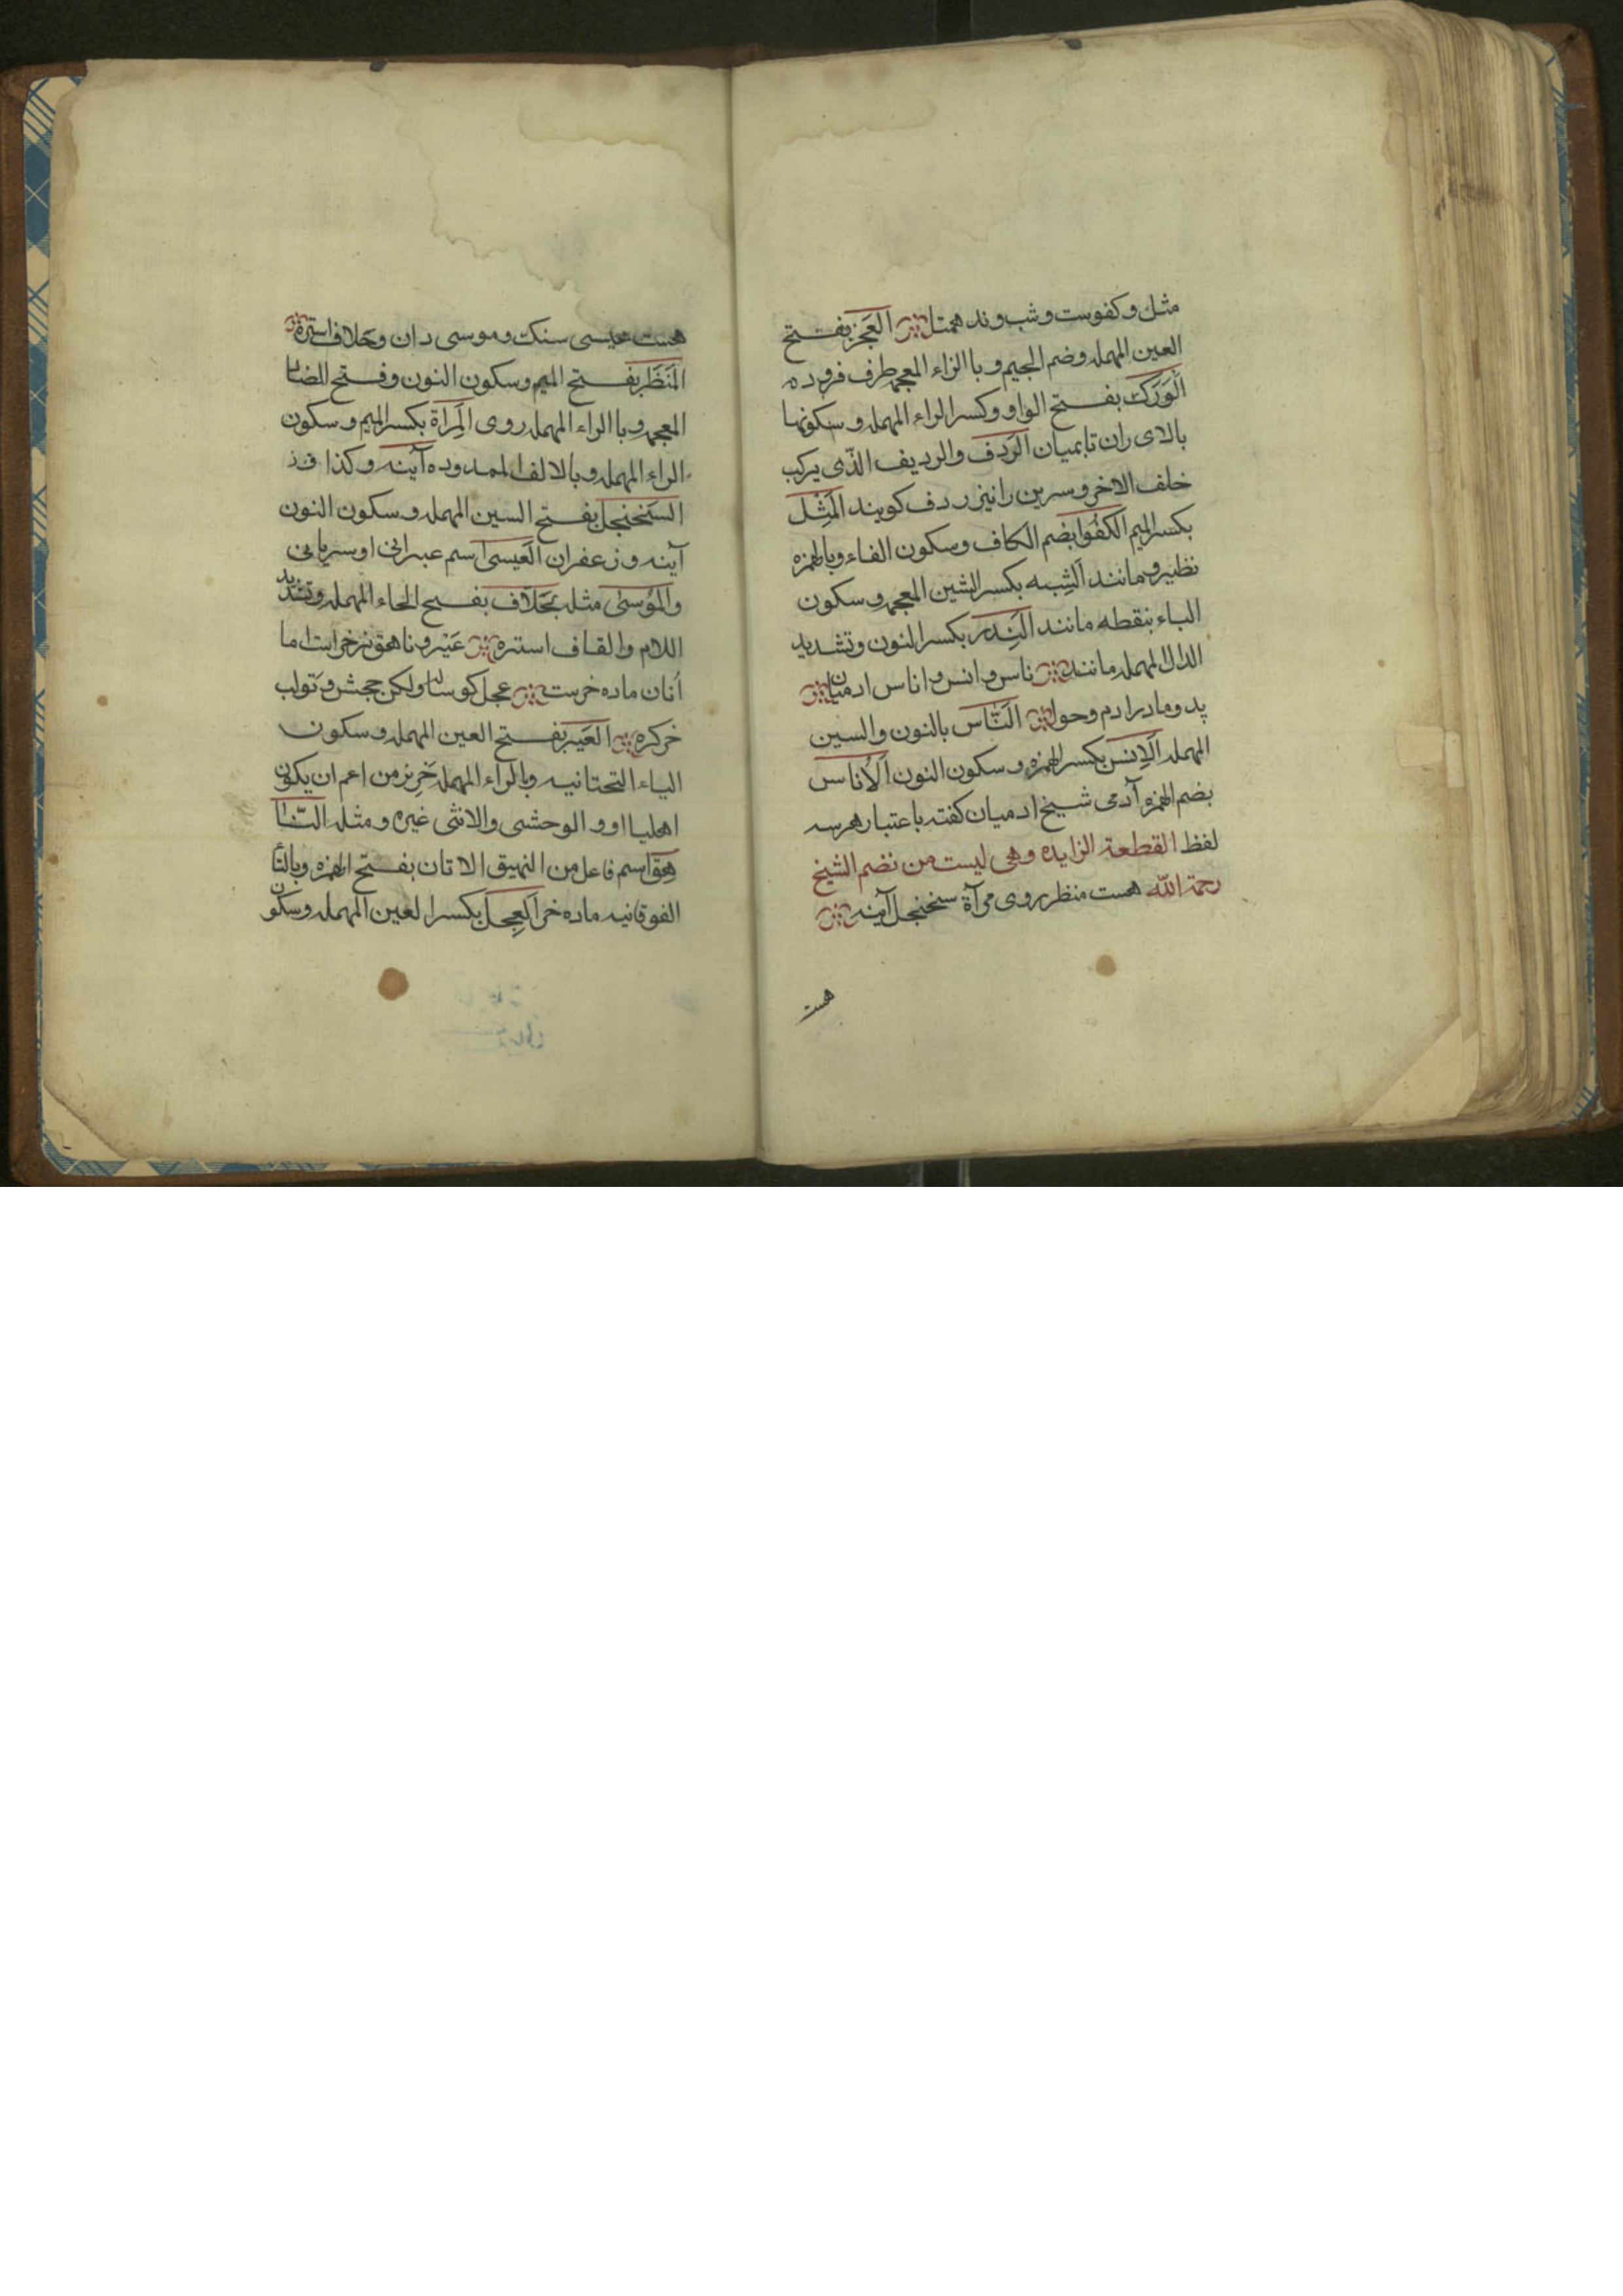 مثل وکفوست وشبه وند همتل العَجُز بفتح
العین المهمله وضم الجیم و باالزاء المعجمه طرف فروده
الوَرِک بفتح الواو وکسر الراء المهمله و سکونها
بالای ران تا بمیان الرَدف والردیف الذّی یرکب
خلف الاخر وسرین رانیز ردف کویند المِثل
بکسر المیم الکُفُوا بضم الکاف وسکون الفاء وبالهمزه
نظیر و مانند الشِبه بکسر الشین المعجمه و سکون
الباء بنقطه مانند النِدّ بکسر النون وتشدید
الدال المهمله مانند ناس و انس و اناس ادمیان
پد ومادر ادم وحوا النّاس بالنون والسین
المهمله الاِنس بکسر الهمزه و سکون النون الاُناس
بضم الهمزه آدمی شیخ ادمیان کفته باعتبار هرسه
لفظ القطعة الزایده وهی لیست من نضم الشیخ
رحمة الله هست منظر روی مرآة سنجنجل آینه
هست
هست عیسی سنک وموسی دان وحلاف استره
المَنظَر بفتح المیم وسکون النون وفتح الضاء
المعجمه و باالراء المهمله روی المِرآة بکسر المیم و سکون
الراء المهمله و بالالف الممدوده آینه و کذا
السَنجنجل بفتح السین المهمله و سکون النون
آینه و زعفران العیسی اسم عبرانی او سریانی
والمُوسی مثله بحَلاف بفتح الحاء المهمله وتشدید
اللام والقاف استره عَیر و ناهق نرخر است اما
اَتان ماده خرست عجل کوساله ولکن جحش و تَولب
خرکره العَیر بفتح العین المهمله و سکون
الیاء التحتانیه وبالراء المهمله خرِ نر من اعم ان یکون
اهلیا او و الوحشی والانثی غیره و مثله النّا
هِق اسم فاعل من النهیق الاتان بفتح الهمزه وبالتأ
الفوقانیه ماده خر العِجل بکسر العین المهمله وسکون